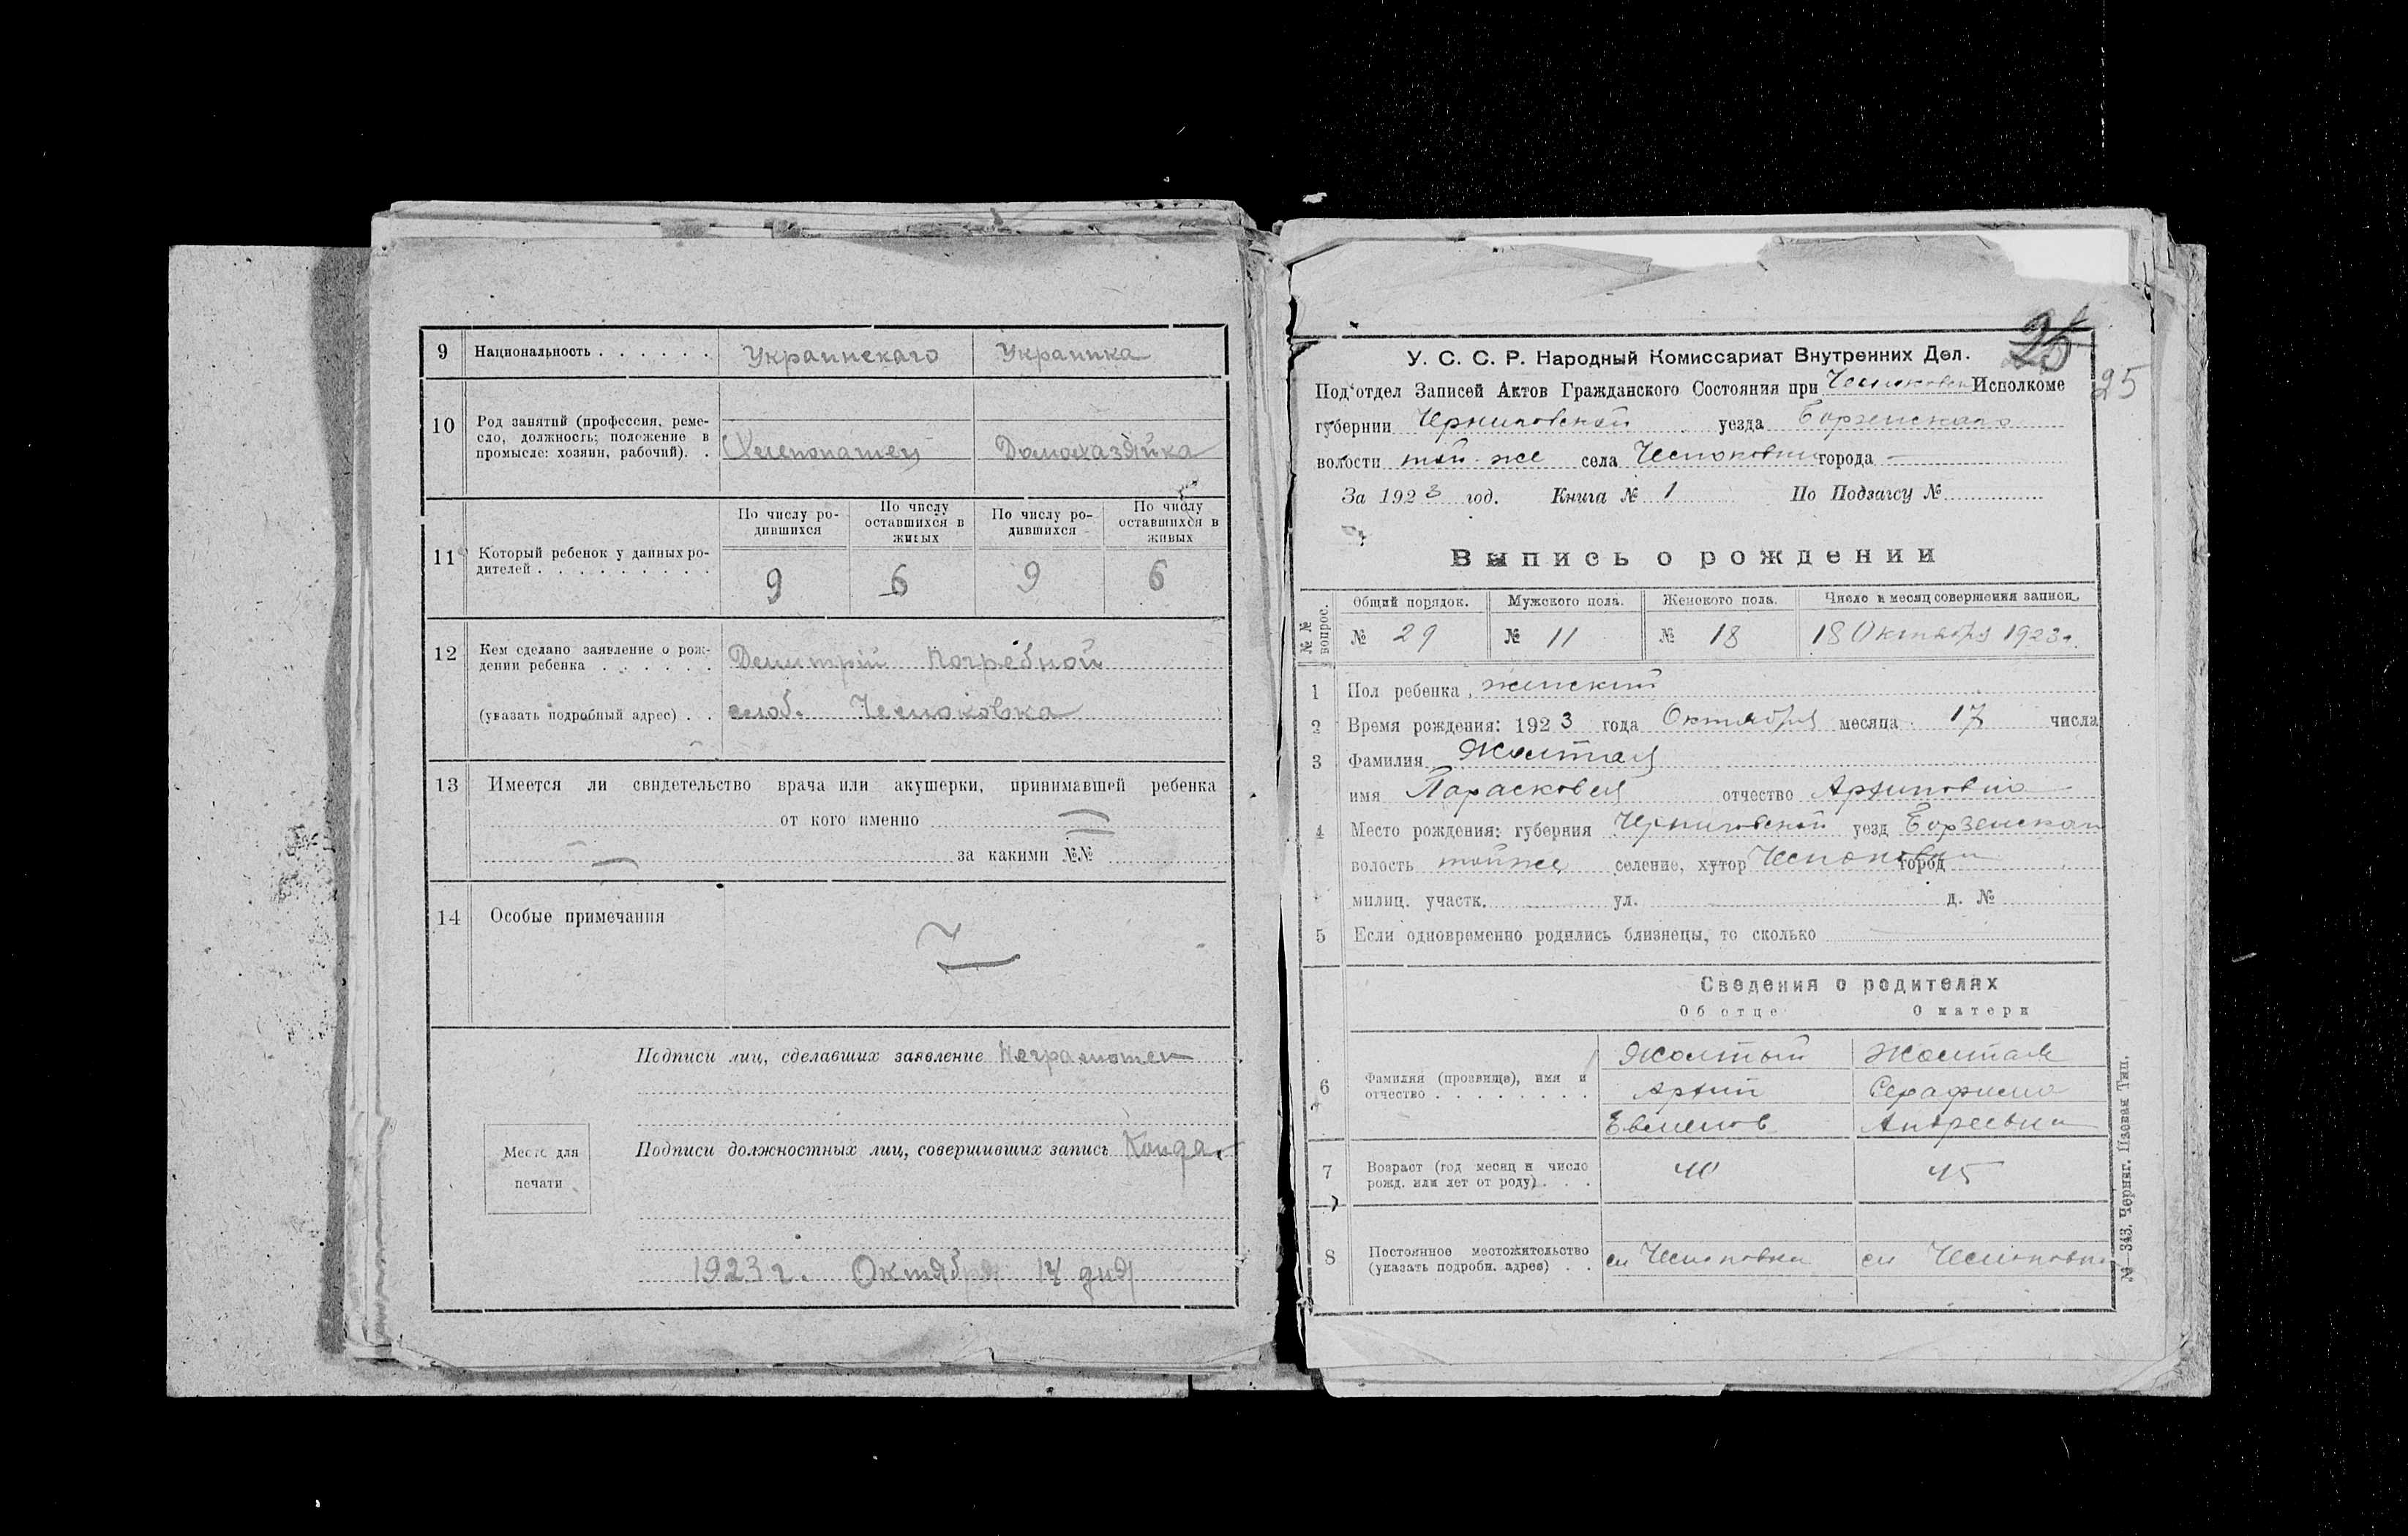 9 Национальность . . . . . . Украинскаго Украинка
10 Род занятий (профессия, реме-
сло, должность; положение в
промысле: хозяин, рабочий). . Хлепопашец Домохазяйка
По числу ро-
дившихся
По числу
оставшихся в
живых
По числу ро-
дившихся
По числу
оставшихся в
живых
11 Который ребенок у данных ро-
дителей . . . . . . . . . 9 6 9 6
12 Кем сделано заявление о рож-
дении ребенка . . . . . . Демитрій Погребной
(указать подробный адрес) . . слоб. Чесноковка
13 Имеется ли свидетельство врача или акушерки, принимавшей ребенка
от кого именно
за какими №№
14 Особые примечания
Подписи лиц, сделавших заявление Неграмотен
Место для
печати
Подписи должностных лиц, совершивших запись
1923 г. Октября 17 дня
25
У. С. С. Р. Народный Комиссариат Внутренних Дел.
Под'отдел Записей Актов Гражданского Состояния при Исполкоме
25
губернии Черниговской уезда Борзенскаго
волости той-же села Чесноковки города —
За 1923 год. Книга № 1 По Подзагсу №
Выпись о рождении
№ № вопрос.
Общий порядок. Мужского пола. Женского пола. Число и месяц совершения записи.
№ 29 № 11 № 18 18 Октября 1923 г.
1 Пол ребенка женский
2 Время рождения: 1923 года Октября месяца 17 числа
3 Фамилия Жолтая
имя Парасковея отчество Архиповна
4 Место рождения: губерния Черниговской уезд Борзенскаго
волость тойже селение, хутор Чесноковки город
милиц. участк. ул. д. №
5 Если одновременно родились близнецы, то сколько
Сведения о родителях
Об отце О матери
6 Фамилия (прозвище), имя и
отчество . . . . . . . .
Жолтый Жолтая
Архип Серафима
Евменов Андреевна
7 Возраст (год месяц и число
рожд. или лет от роду) . . . 40 45
8 Постоянное местожительство
(указать подробн. адрес) . . сл Чесноковки сл Чесноковки
№ 343. Черниг. Цзевая Тип.